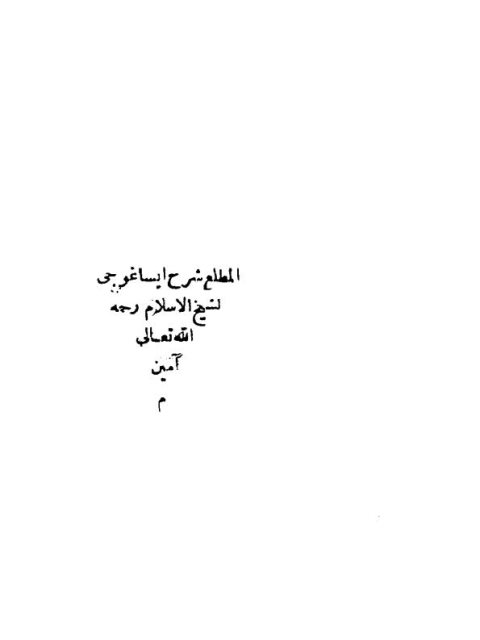 المطلع شرح ايساغوجى
لشيخ الاسلام رحمه
الله تعالي
آمين
م